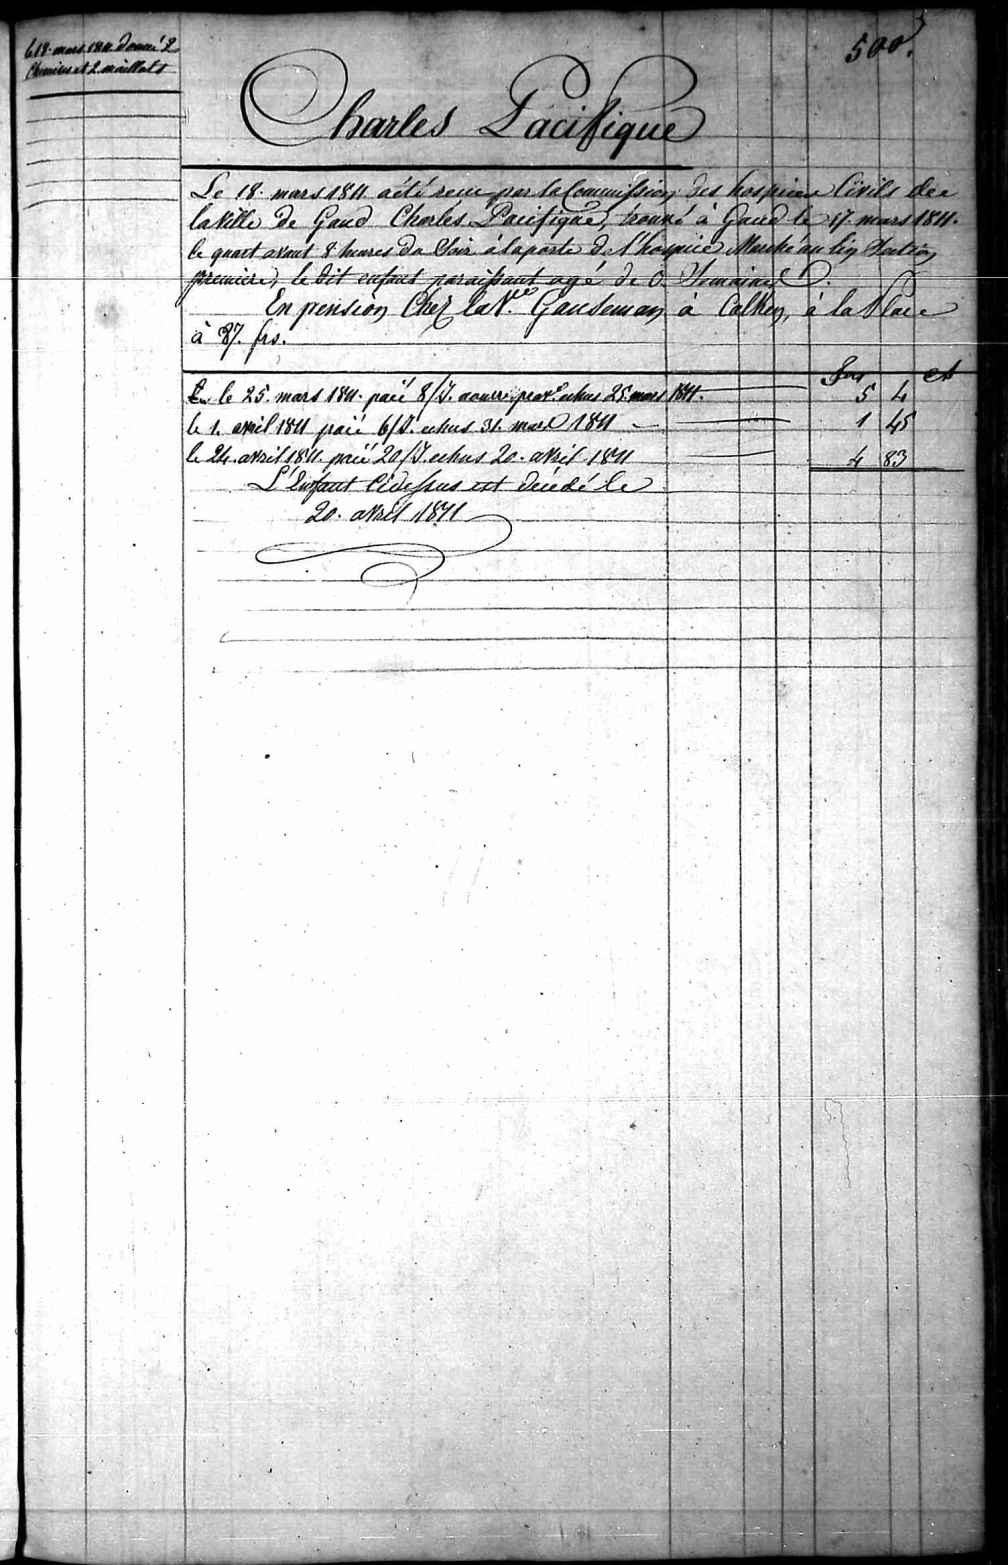 500.
le 18. mars 1811 donné 2
Chemises et 2 maillots
Charles Pacifique
Le 18. mars 1811. a été recu par la Commission des hospices Civils de
la ville de Gand Charles Pacifique, trouvé à Gand le 17. mars 1811.
le quart avant 8 heures du Soir à la porte de l'hospice Marché au lin Section
premiere, le dit enfant paraissant agé de 0. Semaines.
En pension Chez la Ve. Gauseman à Calken, à la Place
à 87. frs.
Frs ct
le 25. mars 1811. paié 8/J. echus 25 mars 1811. 5 4
le 1. avril 1811 paié 6/J. echus 31. mars 1811 1 45
le 24. avril 1811. paié 20/J. echus 20. avril 1811 4 83
L'Enfant Cidessus est décédé le
20. avril 1811